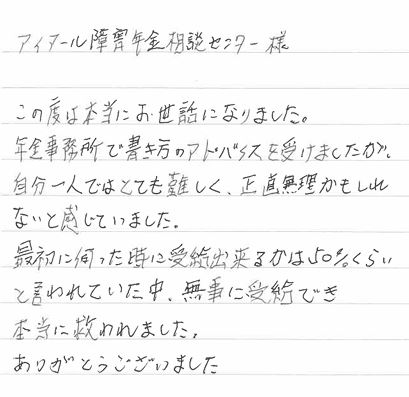 アイアール障害年金相談センター様
この度は本当にお世話になりました。
年金事務所で書き方のアドバイスを受けましたが、
自分一人ではとても難しく、正直無理かもしれ
ないと感じていました。
最初に伺った時に受給出来るかは50%くらい
と言われていた中、無事に受給でき
本当に救われました。
ありがとうございました